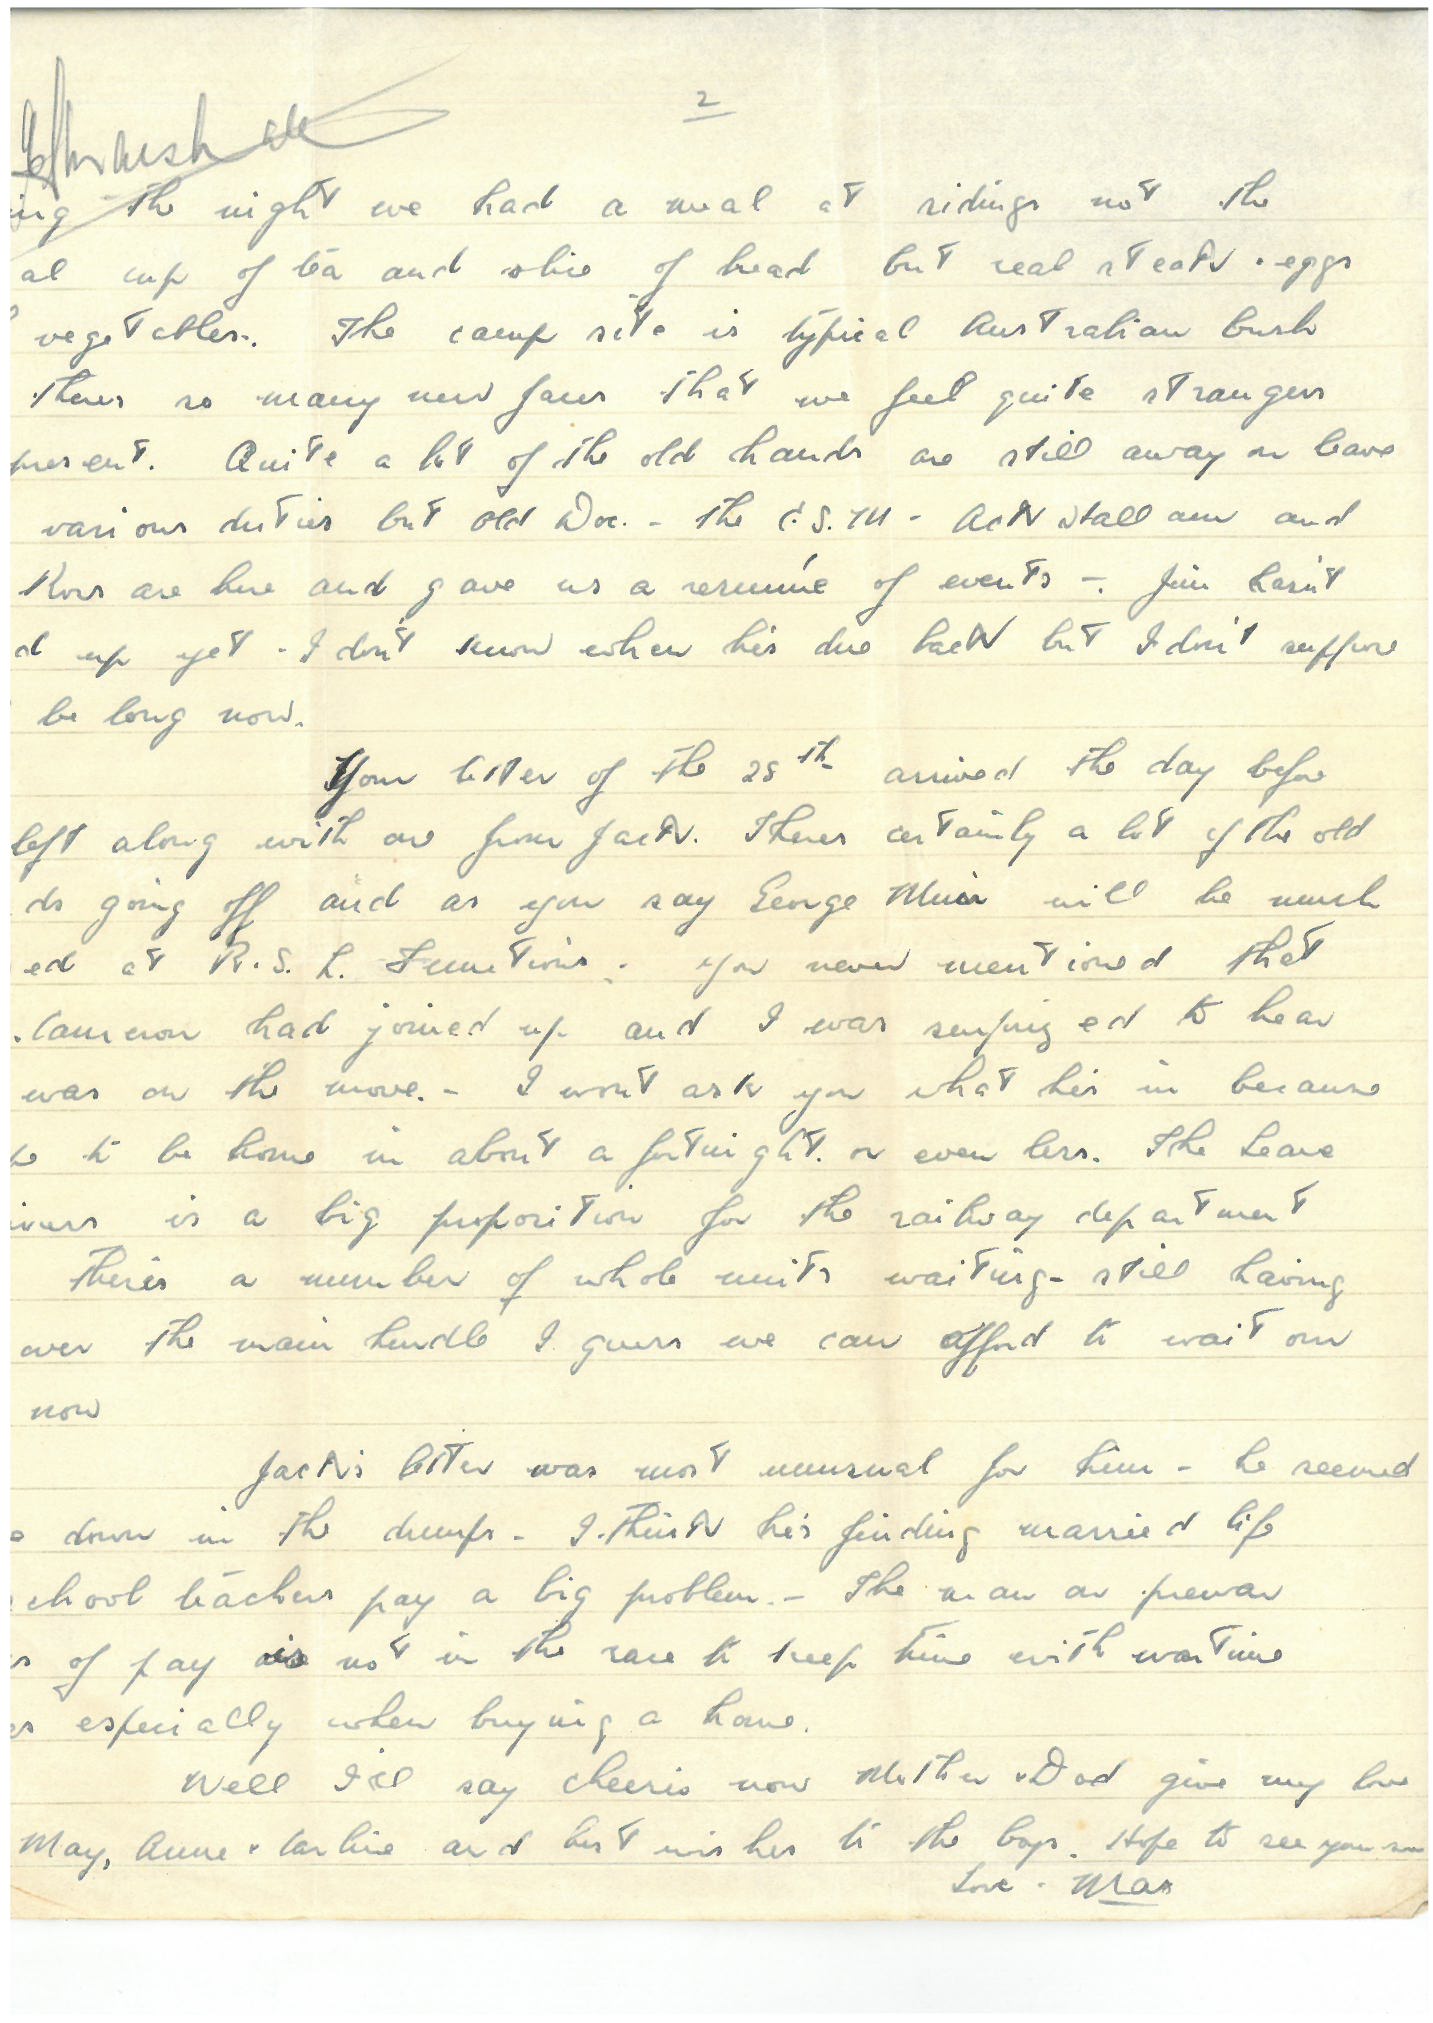 2
ing the night we had a meal at sidings not the
al cup of tea and slice of bread but real steak . eggs
vegetables. The camp site is typical Australian bush
theres so many new faces that we feel quite strangers
present. Quite a lot of the old hands are still away on leave
various duties but old Doc. - the C.S.M - Ack Hallam and
Ross are here and gave us a resumé of events -. Jim hasn't
d up yet - I don't know when he's due back but I don't suppose
be long now.
Your letter of the 25th arrived the day before
left along with one from Jack. Theres certainly a lot of the old
ds going off and as you say George Muir will be much
ed at R.S.L. Functions. you never mentioned that
. Cameron had joined up and I was surprized to hear
was on the move. - I won't ask you what he's in because
pe to be home in about a fortnight. or even less. The Leave
ivers is a big proposition for the railway department
there's a number of whole units waiting - still having
over the main hurdle I guess we can afford to wait our
now
Jack's letter was most unusual for him - he seemed
down in the dumps - I think he's finding married life
school teachers pay a big problem. - The man on prewar
s of pay is not in the race to keep time with wartime
es especially when buying a home.
Well I'll say cheerio now Mother & Dad give my love
May, Anne & Carline and best wishes to the boys. Hope to see you soon
Love - Max